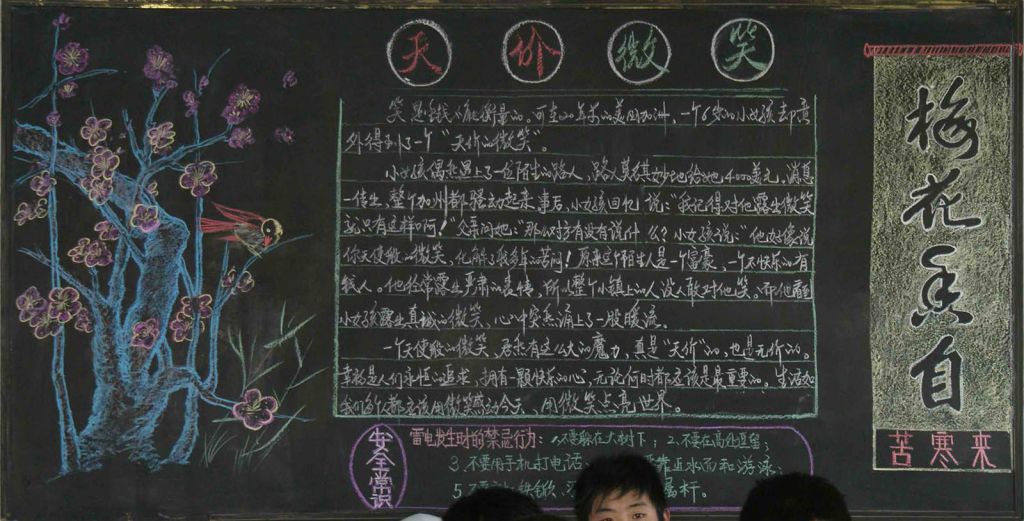 天价微笑
笑是金钱不能衡量的。可在00年前的美国加州，一个6岁的小女孩却意
外得到了一个“天价的微笑”。
小女孩偶然遇上了一位陌生的路人，路人莫名其妙地给她4000美元，消息
一传出，整个加州都骚动起来事后，小女孩回忆说：“我记得对他露出微笑
就只有这样啊！”父亲问她：“那么对方有没有说什么？小女孩说：“他好像说
你天使般的微笑，化解了我多年的苦闷！原来这个陌生人是一个富豪，一个不快乐的有
钱人。他经常露出严肃的表情，所以整个小镇上的人没人敢对他笑。而他看到
小女孩露出真诚的微笑，心中突然涌上了一股暖流。
一个天使般的微笑，居然有这么大的魔力，真是“天价”的，也是无价的。
幸福是人们永恒的追求，拥有一颗快乐的心，无论何时都应该是最重要的。生活如
我们每人都应该用微笑感动今天，用微笑点亮世界。
安全常识
雷电发生时的禁忌行为：1.不要躲在大树下；2.不要在高处逗留；
3.不要用手机打电话 要靠近水面和游泳；
5 铁锨 属杆。
梅花香自
苦寒来